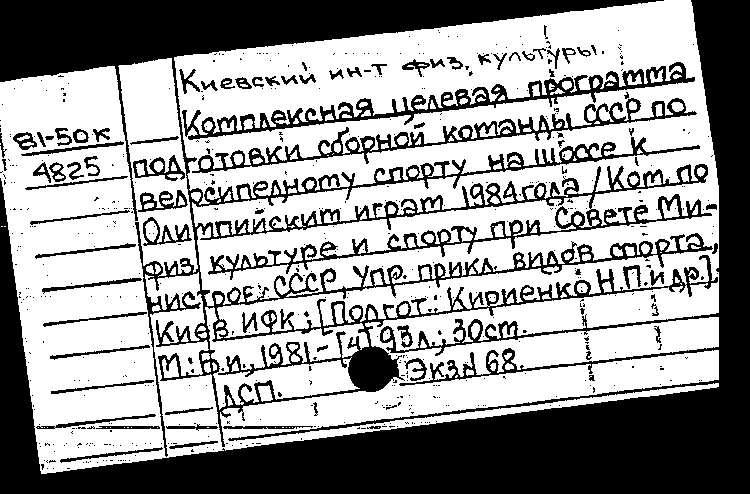 Киевский ин-т физ. культуры.
81-50к
4825
Комплексная целевая программа
подготовки сборной команды СССР по
велосипедному спорту на шоссе к
Олимпийским играм 1984 года / Ком. по
физ. культуре и спорту при Совете Ми-
нистров СССР, Упр. прикл. видов спорта,
Киев. ИФК; [Подгот.: Кириенко Н.П. и др.].
М.: Б.и., 1981.- [4] 93 л.; 30 ст.
ДСП. Экз N 68.